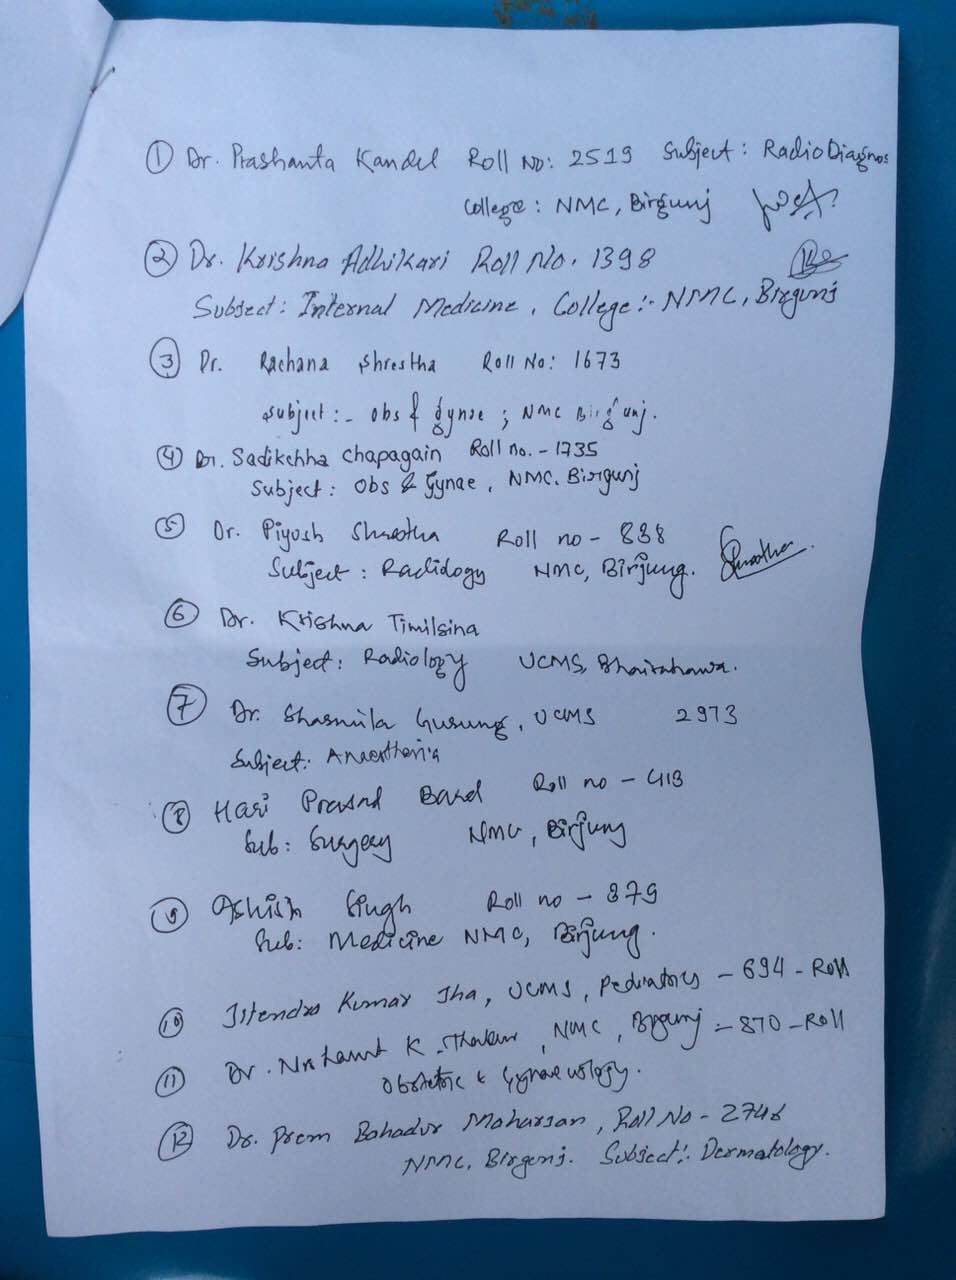 ① Dr. Prashanta Kandel Roll No: 2519 Subject: RadioDiagnos
College: NMC, Birgunj
② Dr. Krishna Adhikari Roll No. 1398
Subject: Internal Medicine, College:- NMC, Birgunj
③ Dr. Rachana Shrestha Roll No: 1673
subject:- obs & gynae ; NMC Birgunj.
④ Dr. Sadikchha Chapagain Roll no. - 1735
Subject: Obs & Gynae, NMC. Birgunj
⑤ Dr. Piyush Shrestha Roll no - 838
Subject: Radiology NMC, Birjung. Shrestha.
⑥ Dr. Krishna Timilsina
Subject: Radiology UCMS, Bhairahawa.
⑦ Dr. Sharmila Gurung, UCMS 2973
Subject: Anaesthesia
⑧ Hari Prasad Roll no - 413
Sub: Surgery NMC, Birjung
⑨ Ashish Singh Roll no - 879
Sub: Medicine NMC, Birjung.
⑩ Jitendra Kumar Jha, UCMS, Pediatrics - 694 - Roll
⑪ Dr. Nishant K. Thakur, NMC, Birgunj - 870 - Roll
Obstetric & Gynaecology.
⑫ Dr. Prem Bahadur Maharjan, Roll No - 2746
NMC, Birgunj. Subject:- Dermatology.